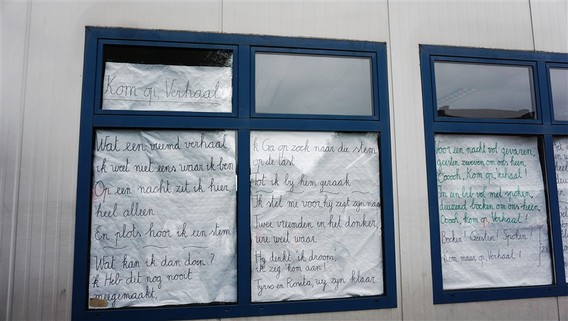 Kom op, Verhaal
Wat een vreemd verhaal
ik weet niet eens waar ik ben
Op een nacht zit ik hier,
heel alleen
En plots hoor ik een stem
Wat kan ik dan doen?
k Heb dit nog nooit
meegemaakt,
k Ga op zoek naar die stem
op de tast
Tot ik bij hem geraak
Ik stel me voor hij zegt zijn naam
Twee vrienden in het donker,
wie weet waar
Hij denkt ik droom,
ik zeg kom aan!
Tyrso en Rosita, wij zijn klaar
Voor een nacht vol gevaren,
geesten zweven om ons heen
Ooooh, Kom op Verhaal!
In een bib vol met spoken,
duizend boeken om ons heen
Ooooh, Kom op Verhaal!
Boeken! Geesten! Spoken!
Kom maar op, Verhaal!